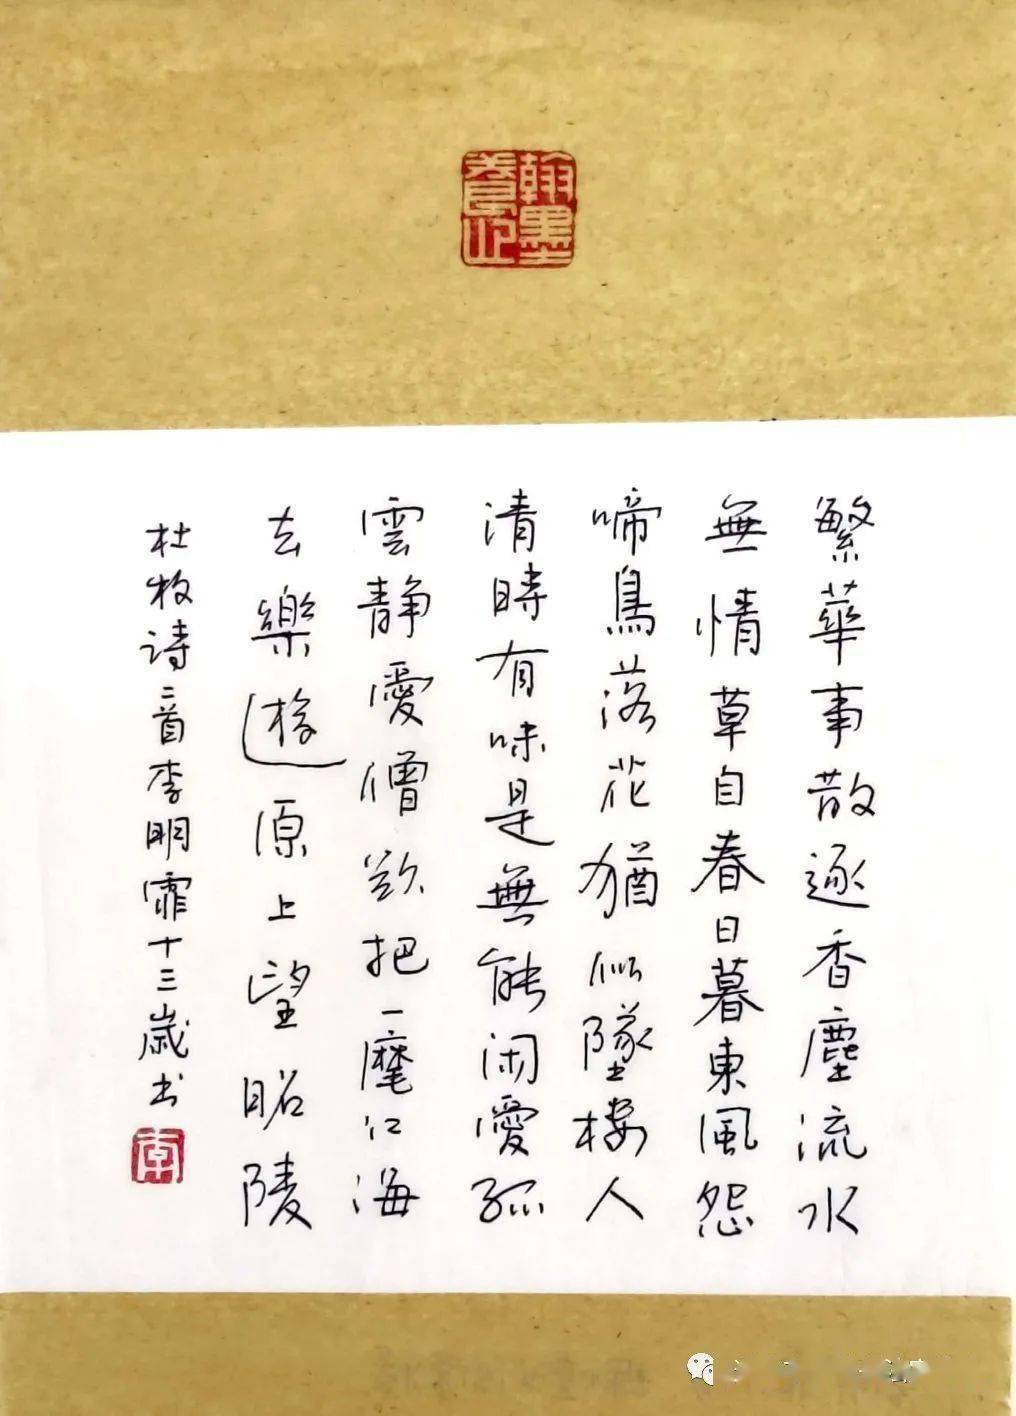 翰墨
繁華事散逐香塵流水
無情草自春日暮東風怨
啼鳥落花猶似墜樓人
清時有味是無能闲愛孤
雲静愛僧欲把一麾江海
去樂遊原上望昭陵
杜牧诗二首李明霏十三歲书